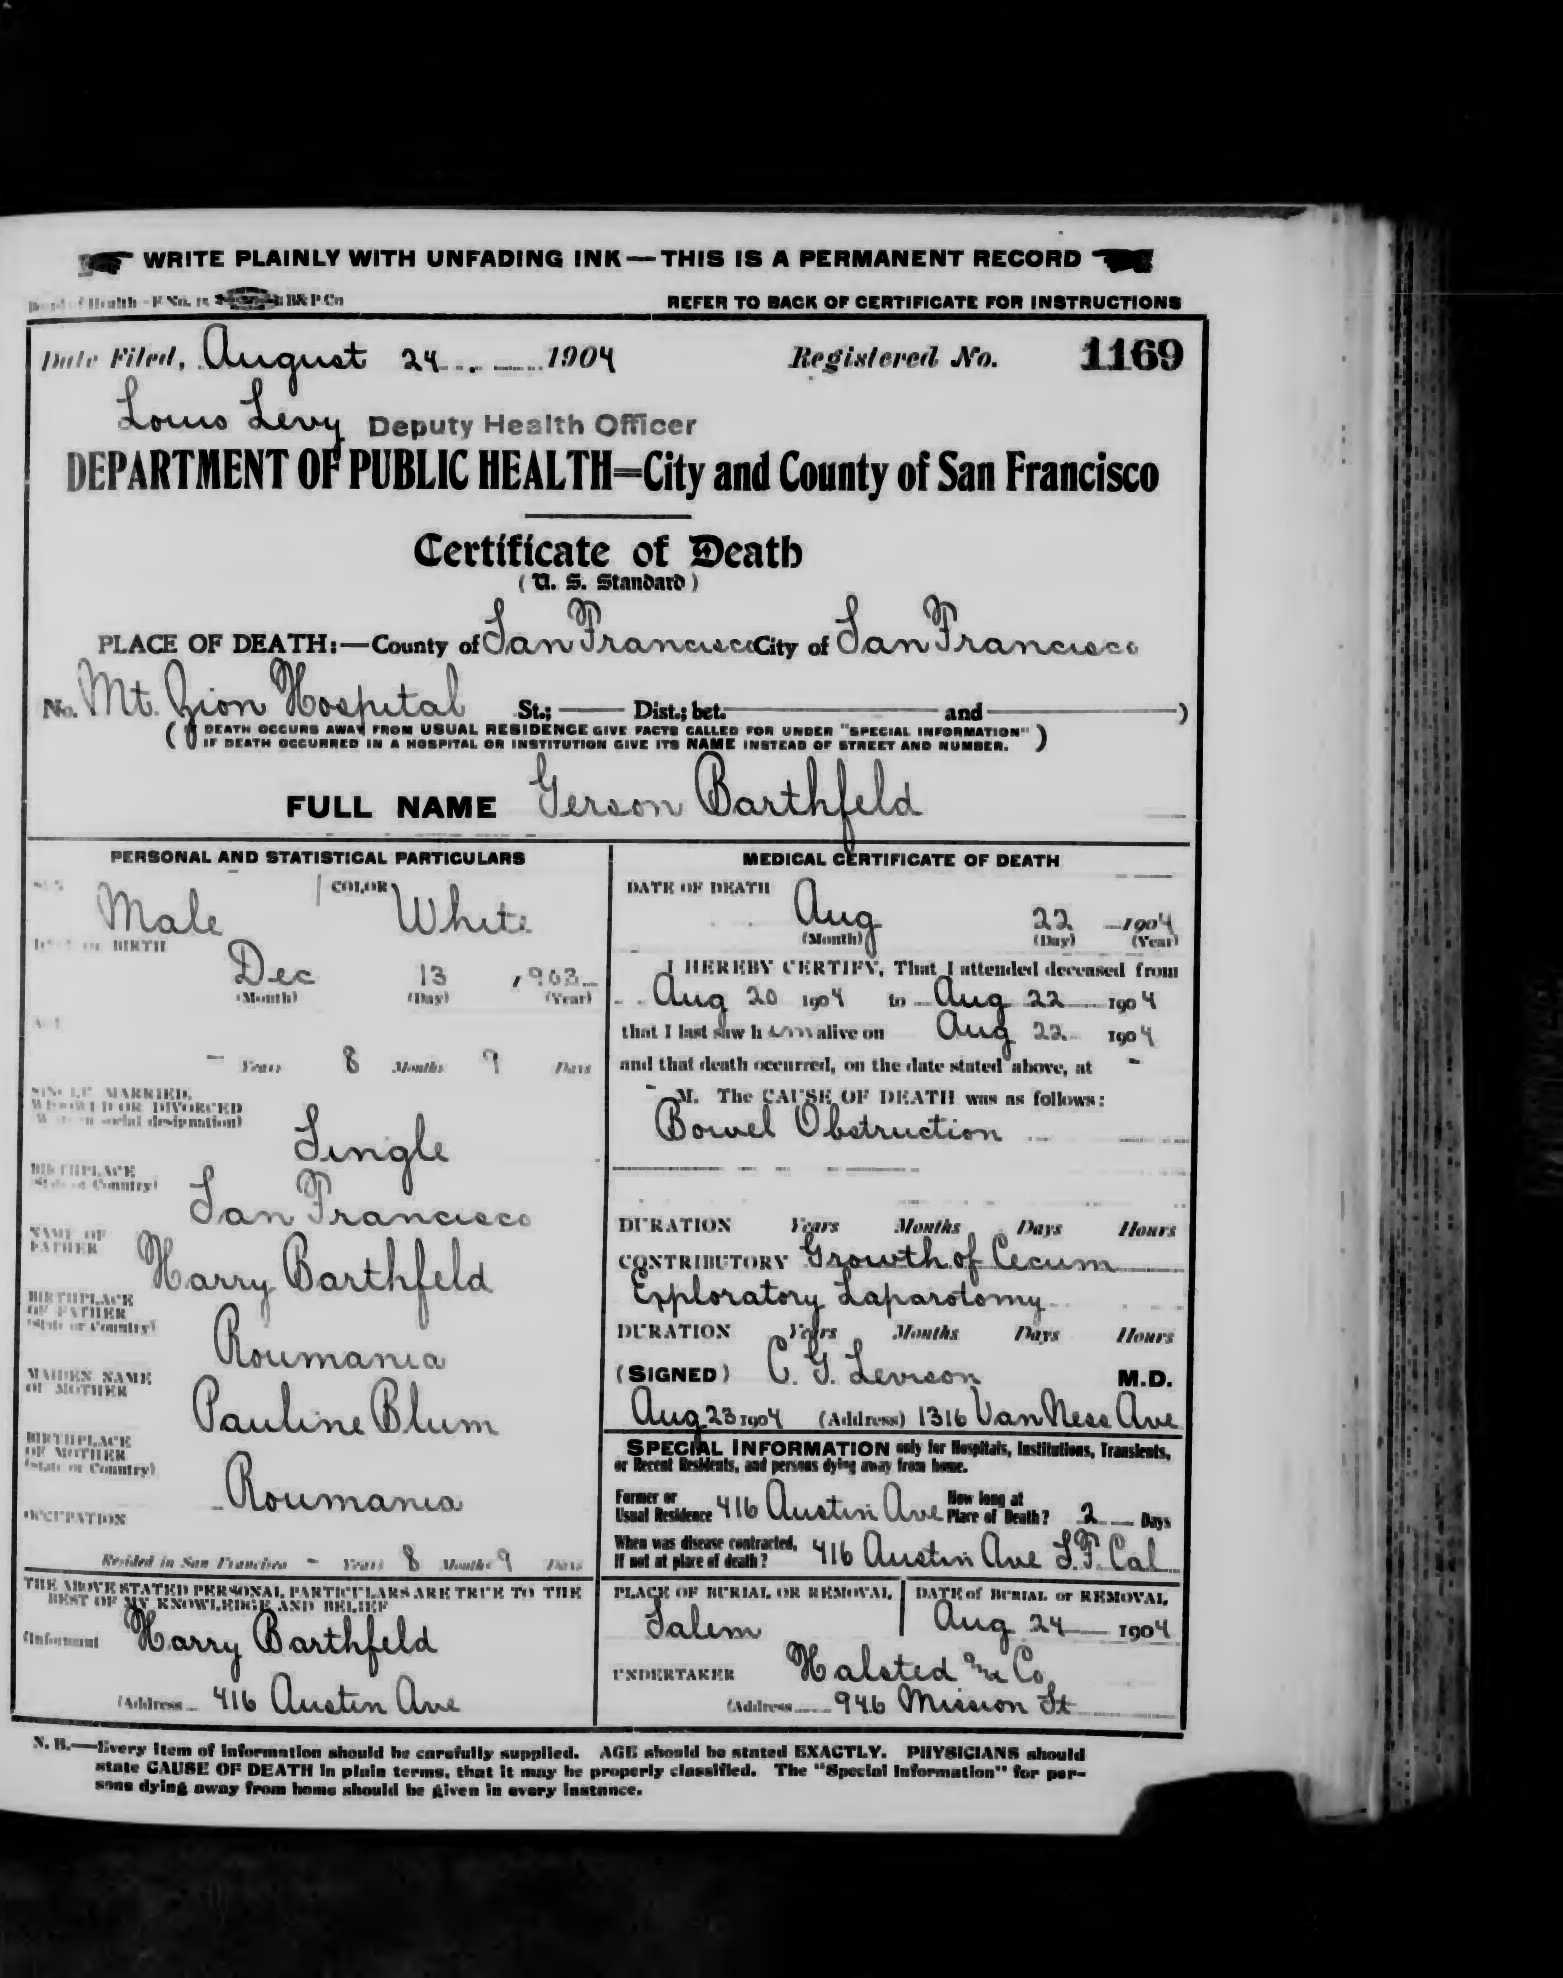 WRITE PLAINLY WITH UNFADING INK—THIS IS A PERMANENT RECORD
B&P Co REFER TO BACK OF CERTIFICATE FOR INSTRUCTIONS
Date Filed, August 24 1904 Registered No. 1169
Louis Levy Deputy Health Officer
DEPARTMENT OF PUBLIC HEALTH=City and County of San Francisco
Certificate of Death
(U. S. Standard)
PLACE OF DEATH:—County of San Francisco City of San Francisco
No. Mt. Zion Hospital St.; —— Dist.; bet. —— and ——)
(IF DEATH OCCURS AWAY FROM USUAL RESIDENCE GIVE FACTS CALLED FOR UNDER "SPECIAL INFORMATION"
IF DEATH OCCURRED IN A HOSPITAL OR INSTITUTION GIVE ITS NAME INSTEAD OF STREET AND NUMBER.)
FULL NAME Gerson Barthfeld
PERSONAL AND STATISTICAL PARTICULARS
SEX Male COLOR White
DATE OF BIRTH
Dec 13 , 903
(Month) (Day) (Year)
AGE
- Years 8 Months 9 Days
SINGLE, MARRIED,
WIDOWED OR DIVORCED
(Write in social designation)
Single
BIRTHPLACE
(State or Country)
San Francisco
NAME OF
FATHER
Harry Barthfeld
BIRTHPLACE
OF FATHER
(State or Country)
Roumania
MAIDEN NAME
OF MOTHER
Pauline Blum
BIRTHPLACE
OF MOTHER
(State or Country)
Roumania
OCCUPATION
Resided in San Francisco - Years 8 Months 9 Days
THE ABOVE STATED PERSONAL PARTICULARS ARE TRUE TO THE
BEST OF MY KNOWLEDGE AND BELIEF
(Informant Harry Barthfeld
(Address 416 Austin Ave
MEDICAL CERTIFICATE OF DEATH
DATE OF DEATH
Aug 22 1904
(Month) (Day) (Year)
I HEREBY CERTIFY, That I attended deceased from
Aug 20 1904 to Aug 22 1904
that I last saw h im alive on Aug 22 1904
and that death occurred, on the date stated above, at -
- M. The CAUSE OF DEATH was as follows:
Bowel Obstruction
DURATION Years Months Days Hours
CONTRIBUTORY Growth of Cecum
Exploratory Laparotomy
DURATION Years Months Days Hours
(SIGNED) C. G. Levison M.D.
Aug 23 1904 (Address) 1316 Van Ness Ave
SPECIAL INFORMATION only for Hospitals, Institutions, Transients,
or Recent Residents, and persons dying away from home.
Former or
Usual Residence 416 Austin Ave How long at
Place of Death? 2 Days
When was disease contracted,
If not at place of death? 416 Austin Ave S.F. Cal
PLACE OF BURIAL OR REMOVAL DATE of BURIAL or REMOVAL
Salem Aug 24 1904
UNDERTAKER Halsted & Co
(Address 946 Mission St
N. B.—Every item of information should be carefully supplied. AGE should be stated EXACTLY. PHYSICIANS should
state CAUSE OF DEATH in plain terms, that it may be properly classified. The "Special Information" for per-
sons dying away from home should be given in every instance.